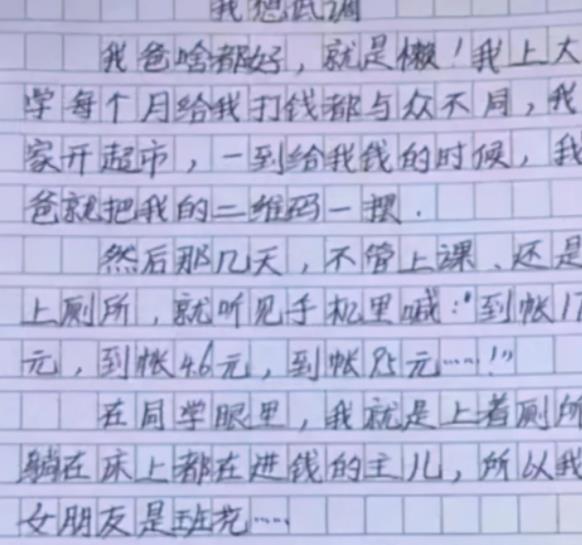 我想低调
我爸啥都好，就是懒！我上大
学每个月给我打钱都与众不同，我
家开超市，一到给我钱的时候，我
爸就把我的二维码一摆.
然后那几天，不管上课、还是
上厕所，就听见手机里喊："到帐17
元，到帐4.6元，到帐85元……！"
在同学眼里，我就是上着厕所
躺在床上都在进钱的主儿，所以我
女朋友是班花……